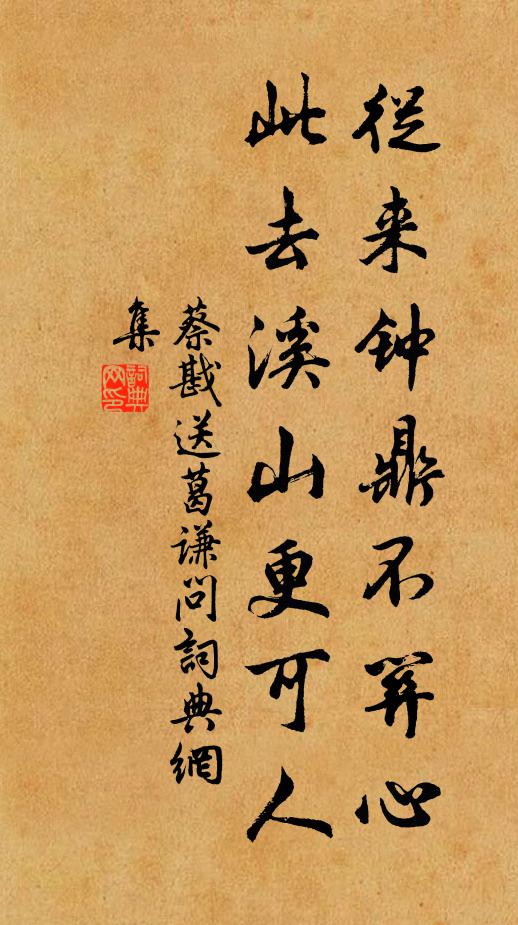 從来钟鼎不関心
此去溪山更可人
蔡戡送葛谦问詞典網
集
詞典
网印